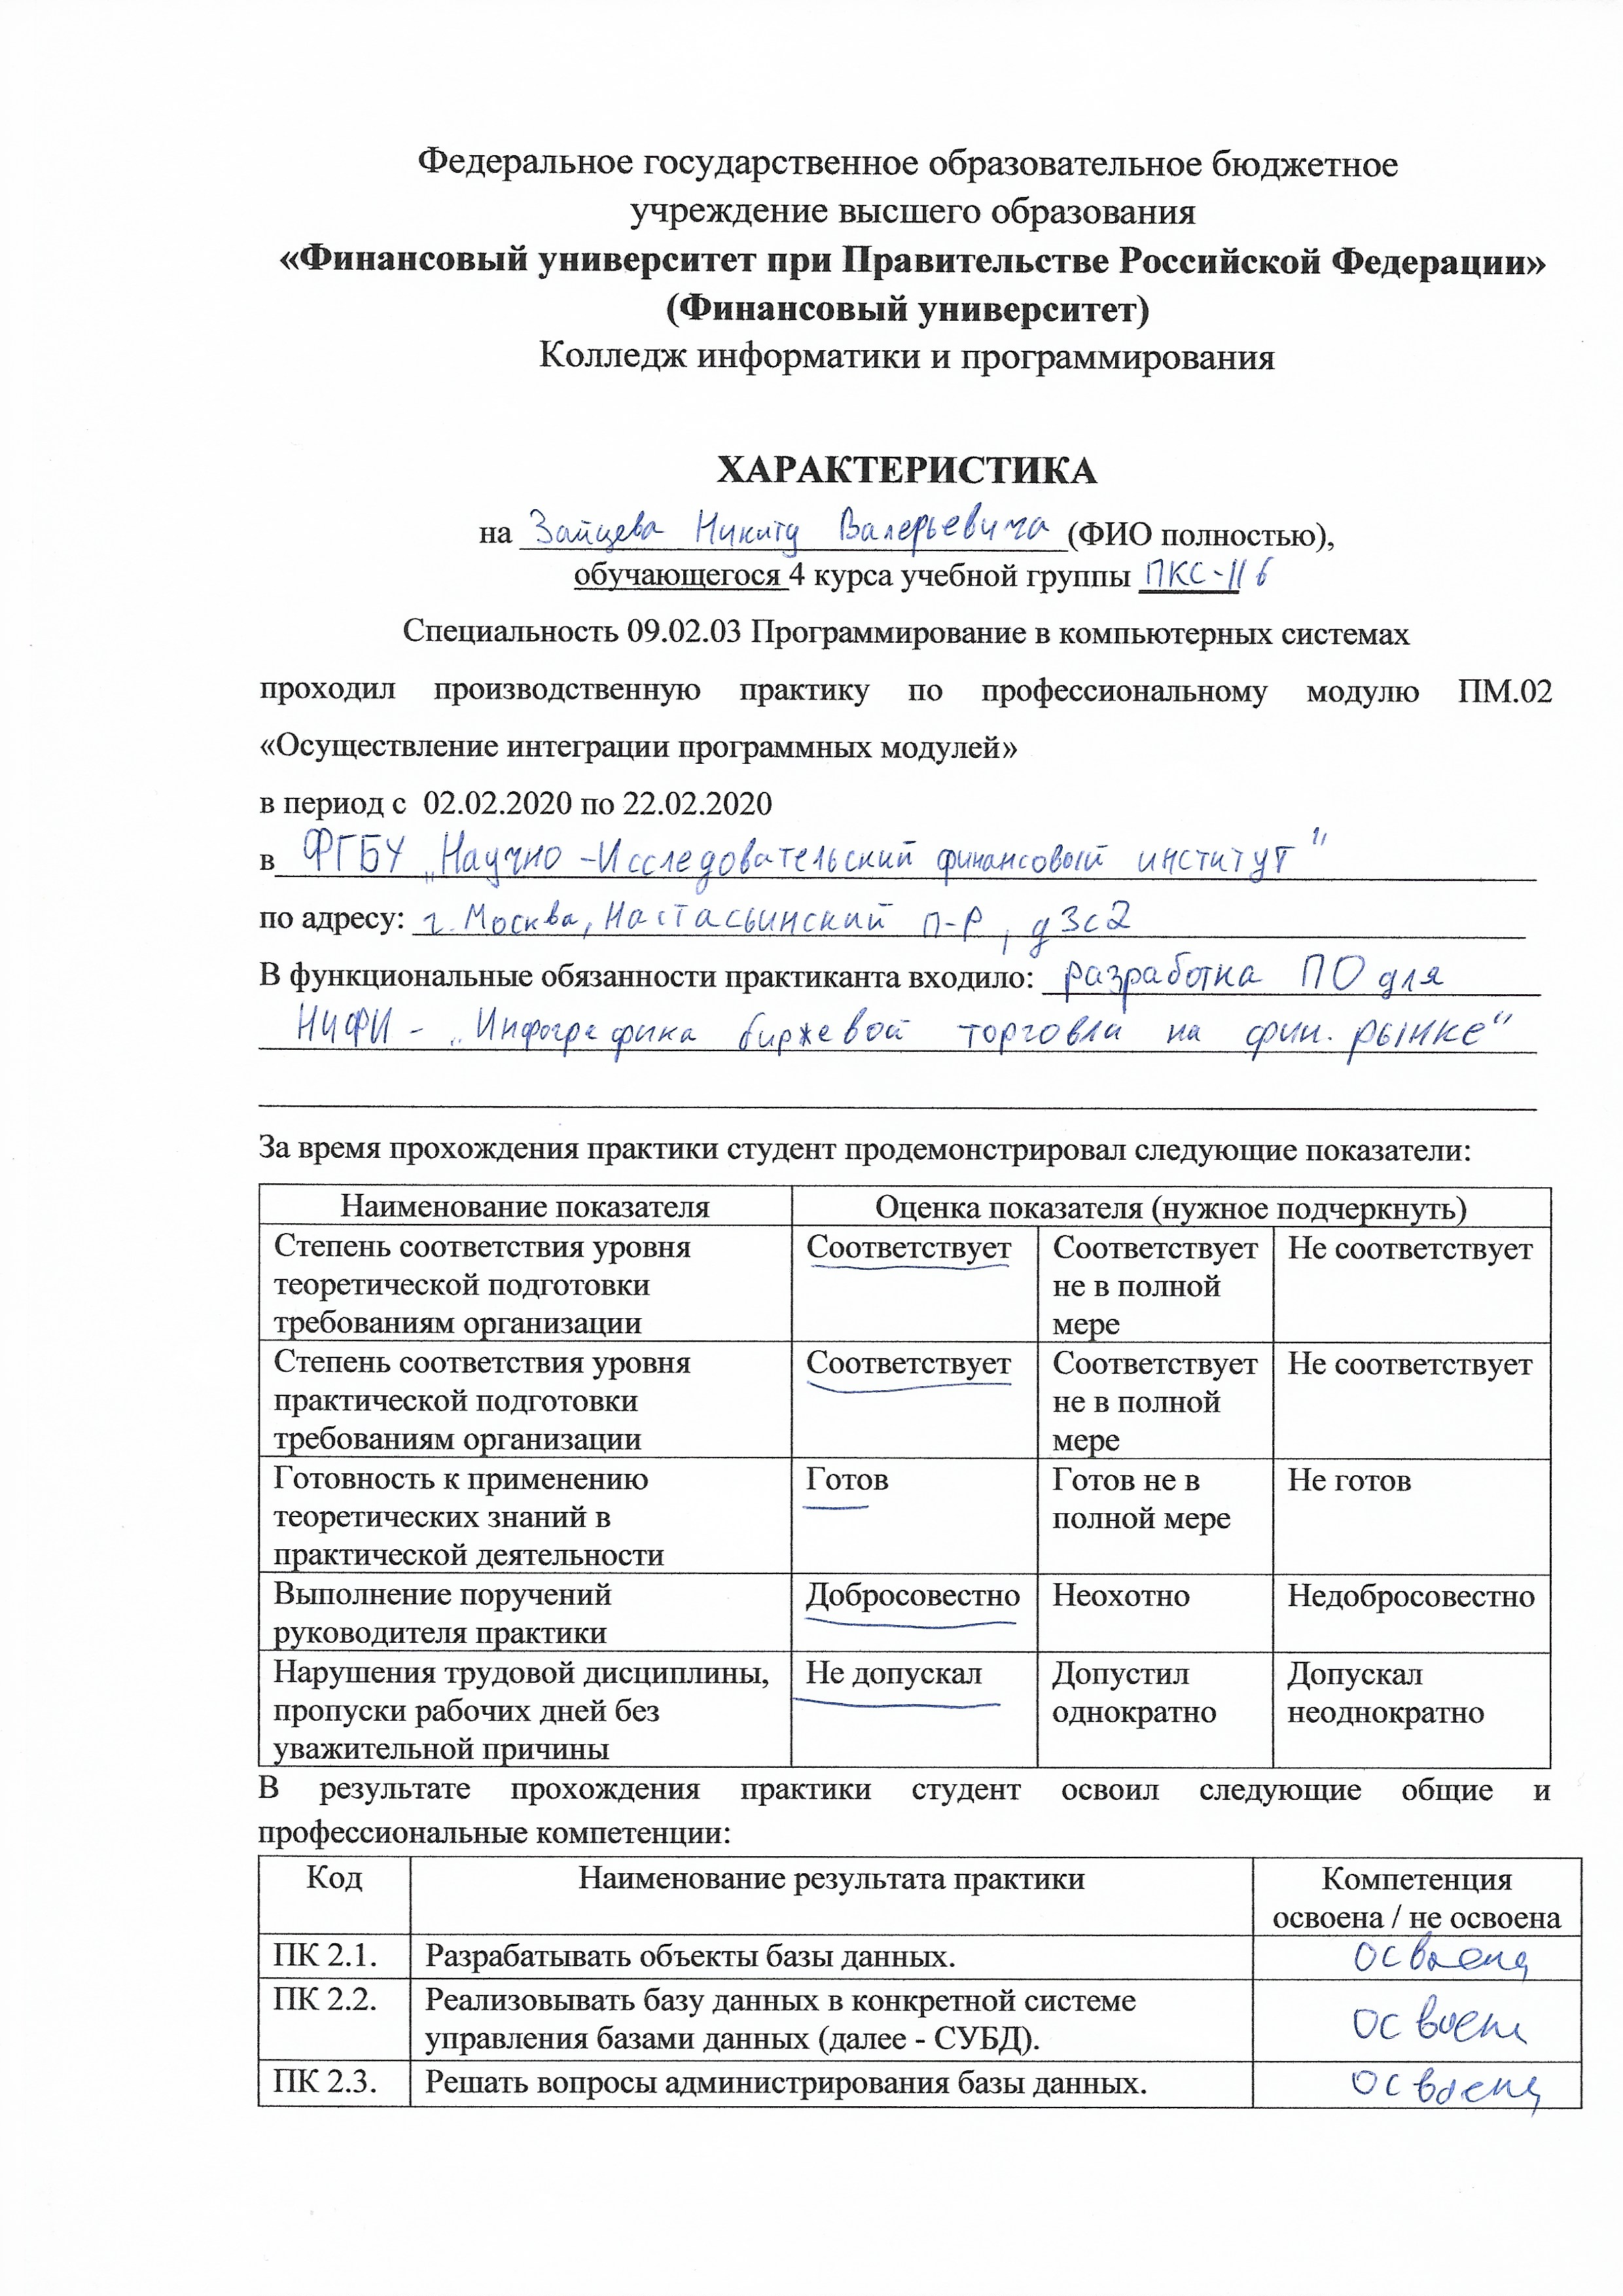 Федеральное государственное образовательное бюджетное
учреждение высшего образования
«Финансовый университет при Правительстве Российской Федерации»
(Финансовый университет)
Колледж информатики и программирования
ХАРАКТЕРИСТИКА
на Зайцева Никиту Валерьевича (ФИО полностью),
обучающегося 4 курса учебной группы ПКС-116
Специальность 09.02.03 Программирование в компьютерных системах
проходил производственную практику по профессиональному модулю ПМ.02
«Осуществление интеграции программных модулей»
в период с 02.02.2020 по 22.02.2020
в ФГБУ „Научно-Исследовательский финансовый институт"
по адресу: г. Москва, Настасьинский п-р, д3с2
В функциональные обязанности практиканта входило: разработка ПО для
НИФИ - „Инфографика биржевой торговли на фин. рынке"
За время прохождения практики студент продемонстрировал следующие показатели:
Наименование показателя Оценка показателя (нужное подчеркнуть)
Степень соответствия уровня Соответствует Соответствует Не соответствует
теоретической подготовки не в полной
требованиям организации мере
Степень соответствия уровня Соответствует Соответствует Не соответствует
практической подготовки не в полной
требованиям организации мере
Готовность к применению Готов Готов не в Не готов
теоретических знаний в полной мере
практической деятельности
Выполнение поручений Добросовестно Неохотно Недобросовестно
руководителя практики
Нарушения трудовой дисциплины, Не допускал Допустил Допускал
пропуски рабочих дней без однократно неоднократно
уважительной причины
В результате прохождения практики студент освоил следующие общие и
профессиональные компетенции:
Код Наименование результата практики Компетенция
освоена / не освоена
ПК 2.1. Разрабатывать объекты базы данных. освоена
ПК 2.2. Реализовывать базу данных в конкретной системе освоена
управления базами данных (далее - СУБД).
ПК 2.3. Решать вопросы администрирования базы данных. освоена